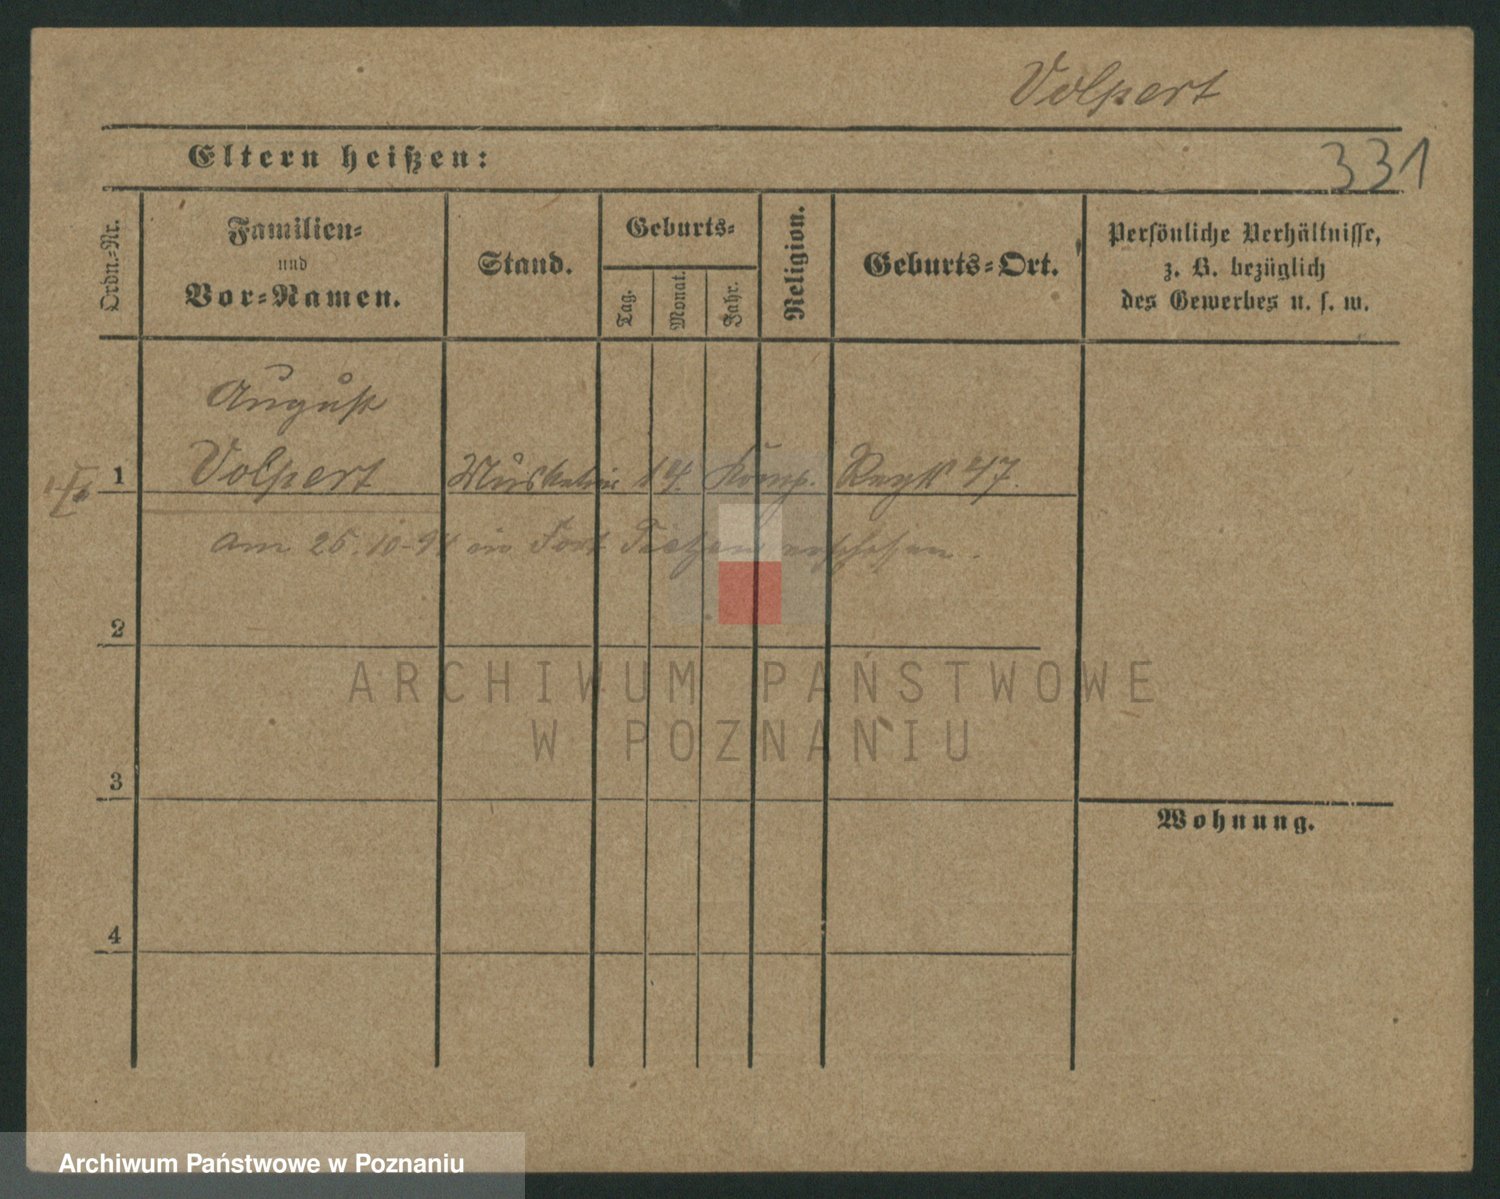 Volpert
Eltern heißen:
331
Ordn.-Nr.
Familien-
und
Vor-Namen.
Stand.
Geburts-
Tag.
Monat.
Jahr.
Religion.
Geburts-Ort.
Persönliche Verhältnisse,
z. B. bezüglich
des Gewerbes u. s. w.
August
1 Volpert Musketier 14. Komp. Regt 47.
am 25. 10. 94 im Fort Tietzen erschossen.
2
ARCHIWUM PAŃSTWOWE
W POZNANIU
3
Wohnung.
4
Archiwum Państwowe w Poznaniu